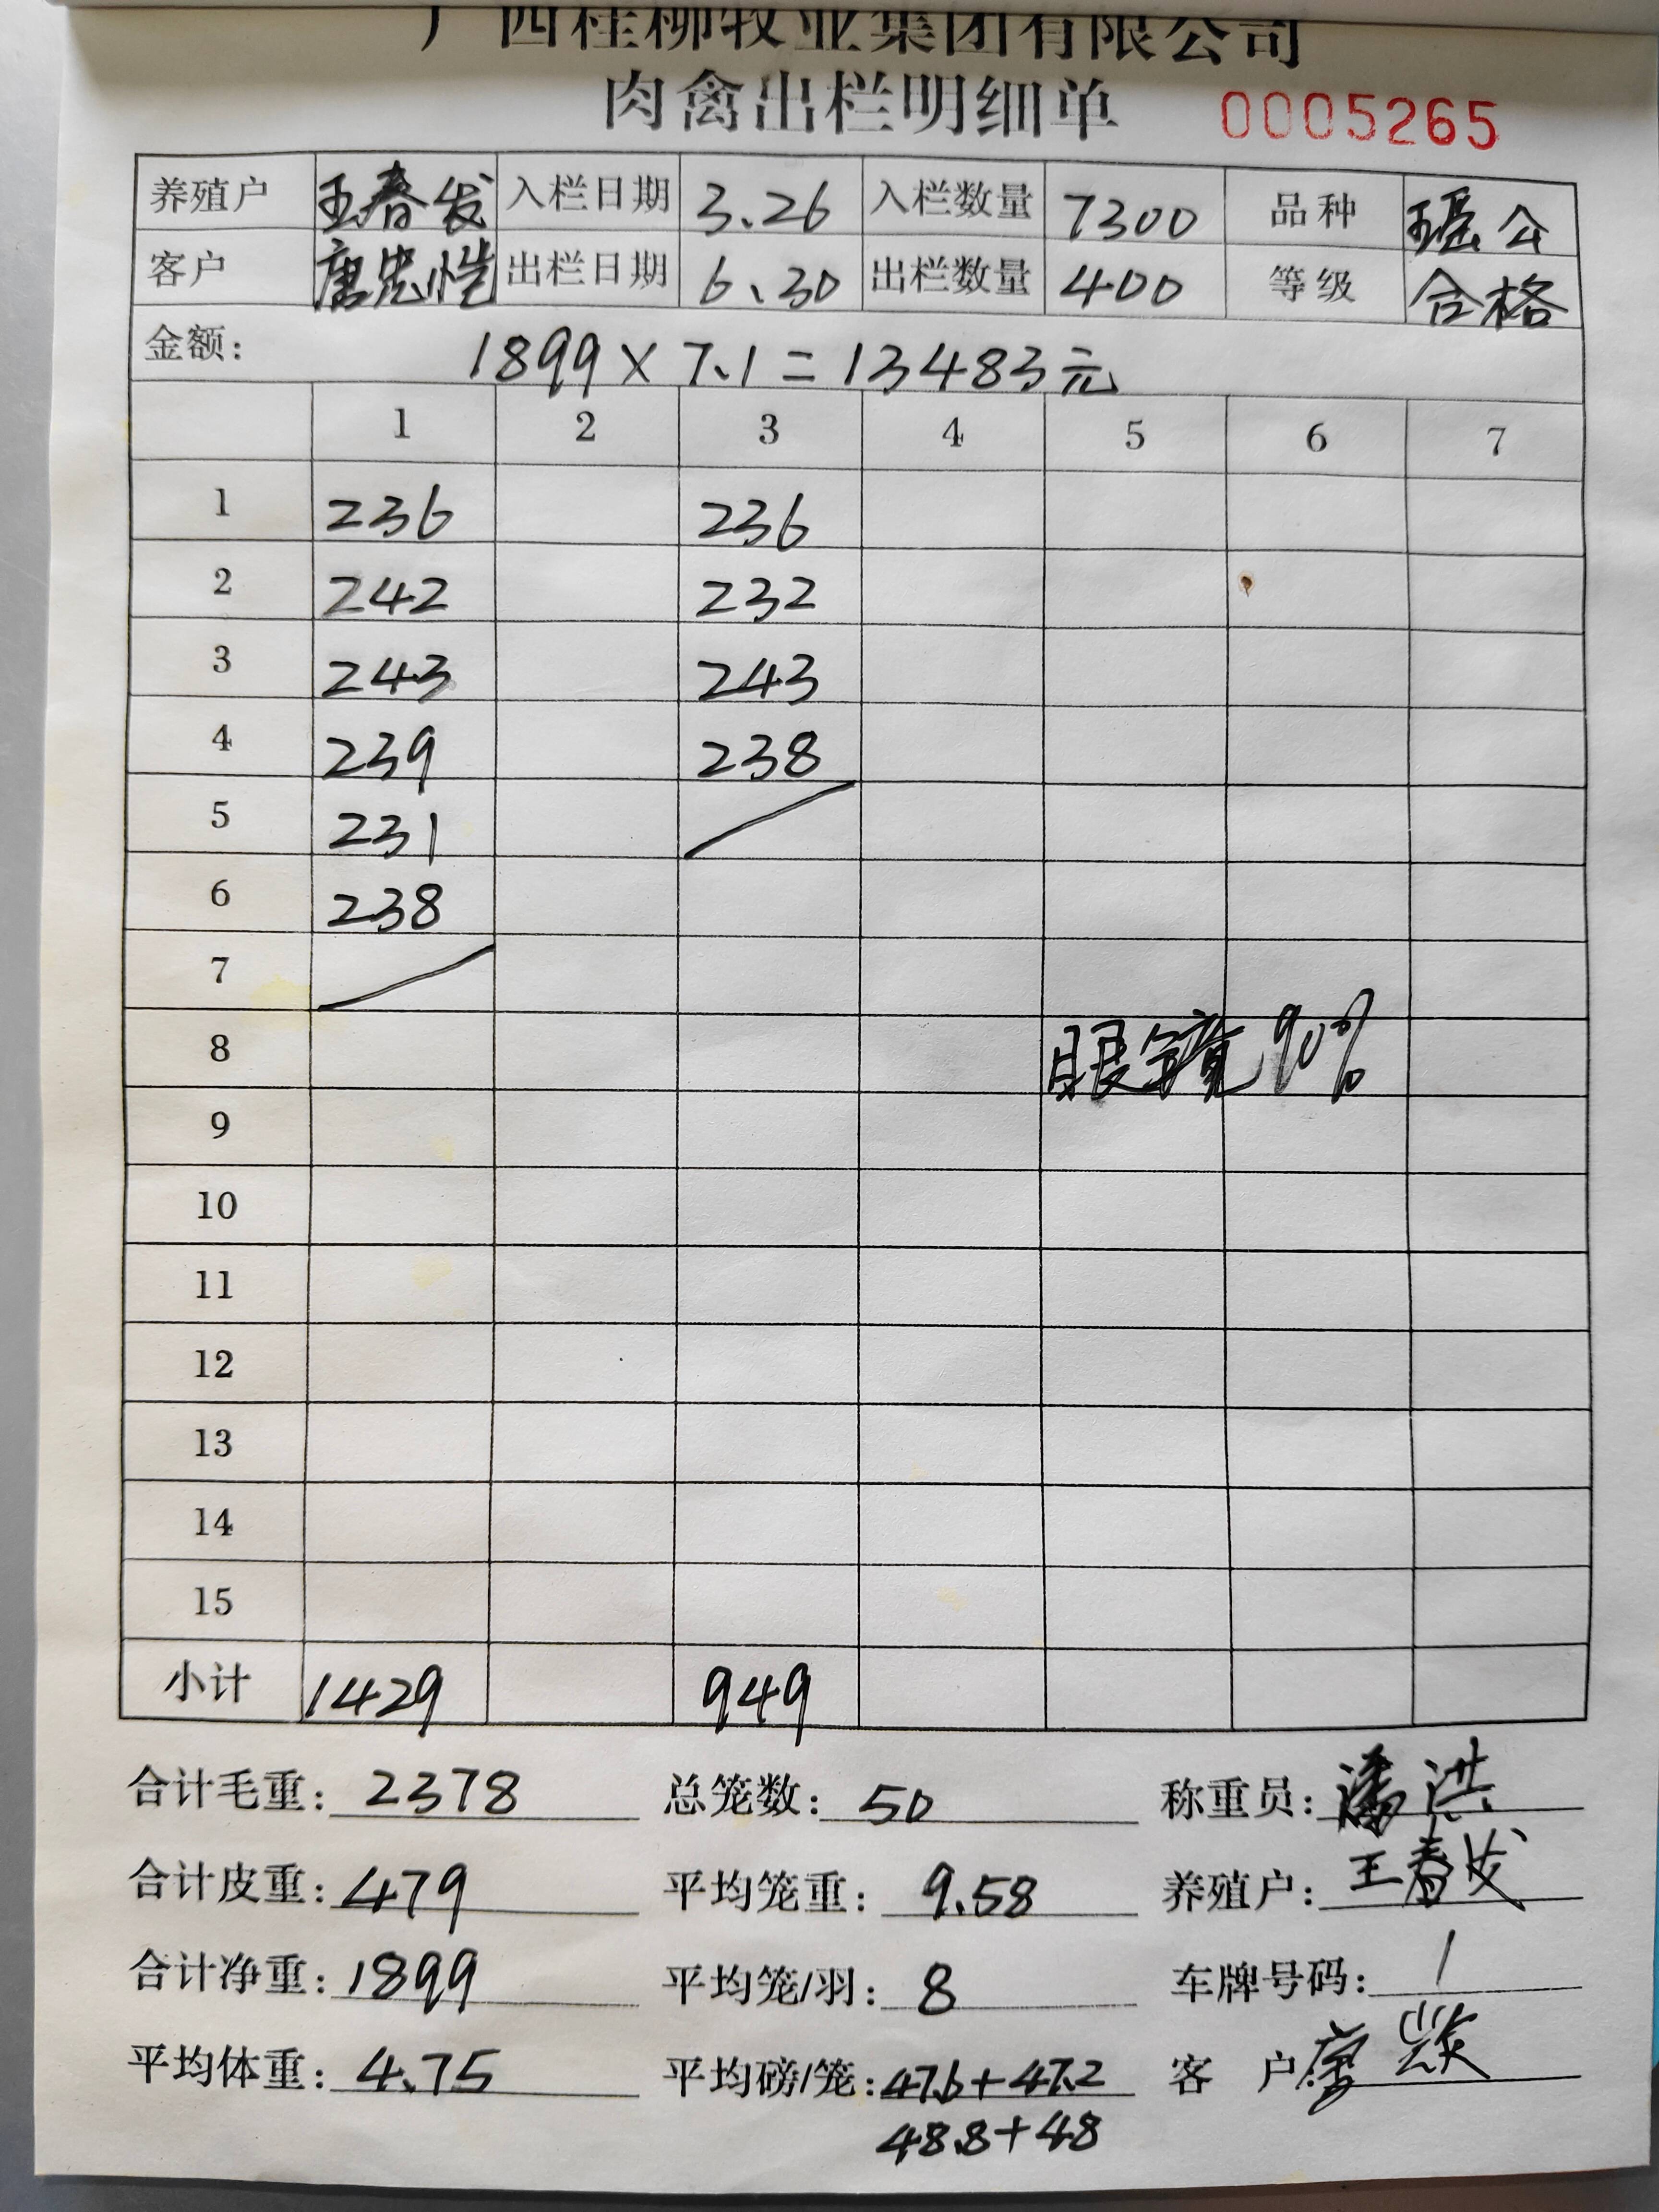 广西桂柳牧业集团有限公司
肉禽出栏明细单 0005265
养殖户 王春发 入栏日期 3.26 入栏数量 7300 品种 瑶公
客户 唐忠恺 出栏日期 6.30 出栏数量 400 等级 合格
金额: 1899×7.1=13483元
1 2 3 4 5 6 7
1 236 236
2 242 232
3 243 243
4 239 238
5 231
6 238
7
8 眼镜90%
9
10
11
12
13
14
15
小计 1429 949
合计毛重: 2378 总笼数: 50 称重员: 潘洪
合计皮重: 479 平均笼重: 9.58 养殖户: 王春发
合计净重: 1899 平均笼/羽: 8 车牌号码: /
平均体重: 4.75 平均磅/笼: 47.6+47.2 客 户
48.8+48